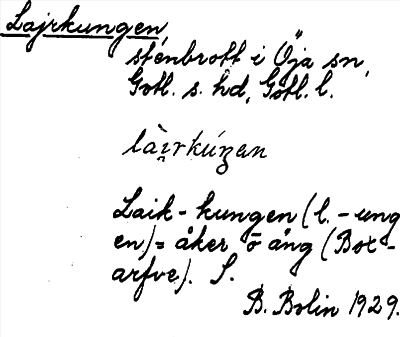 Lajrkungen,
stenbrott i Öja sn,
Gotl. s. hd, Gotl. l.
làirkúŋen
Laik-kungen (l. -ung
en) = åker o äng (Box-
arfve). S.
B. Bolin 1929.